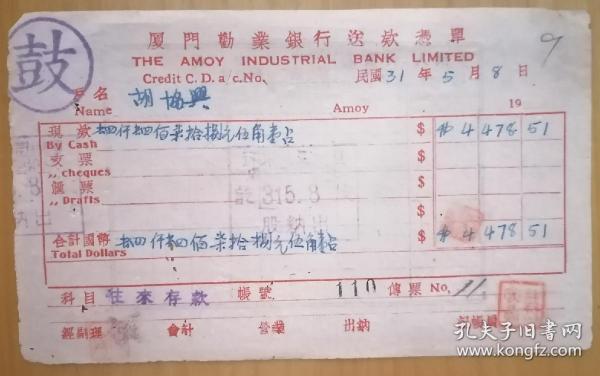 鼓
厦門勸業銀行送欵憑單
THE AMOY INDUSTRIAL BANK LIMITED
Credit C. D. a/c. No. 民國31年5月8日
9
户名 胡協興
Name Amoy 19
現欵 肆仟肆佰柒拾捌元伍角壹占 $ 4 478 51
By Cash
支票 $
,, cheques
匯票 $
,, Drafts
31 5. 8
合計國幣 肆仟肆佰柒拾捌元伍角壹占 $ 4 478 51
Total Dollars
科目 往來存款 帳號 110 傳票 No. 11
經副理 會計 營業 出納 記帳員
孔夫子旧书网
www.kongfz.com